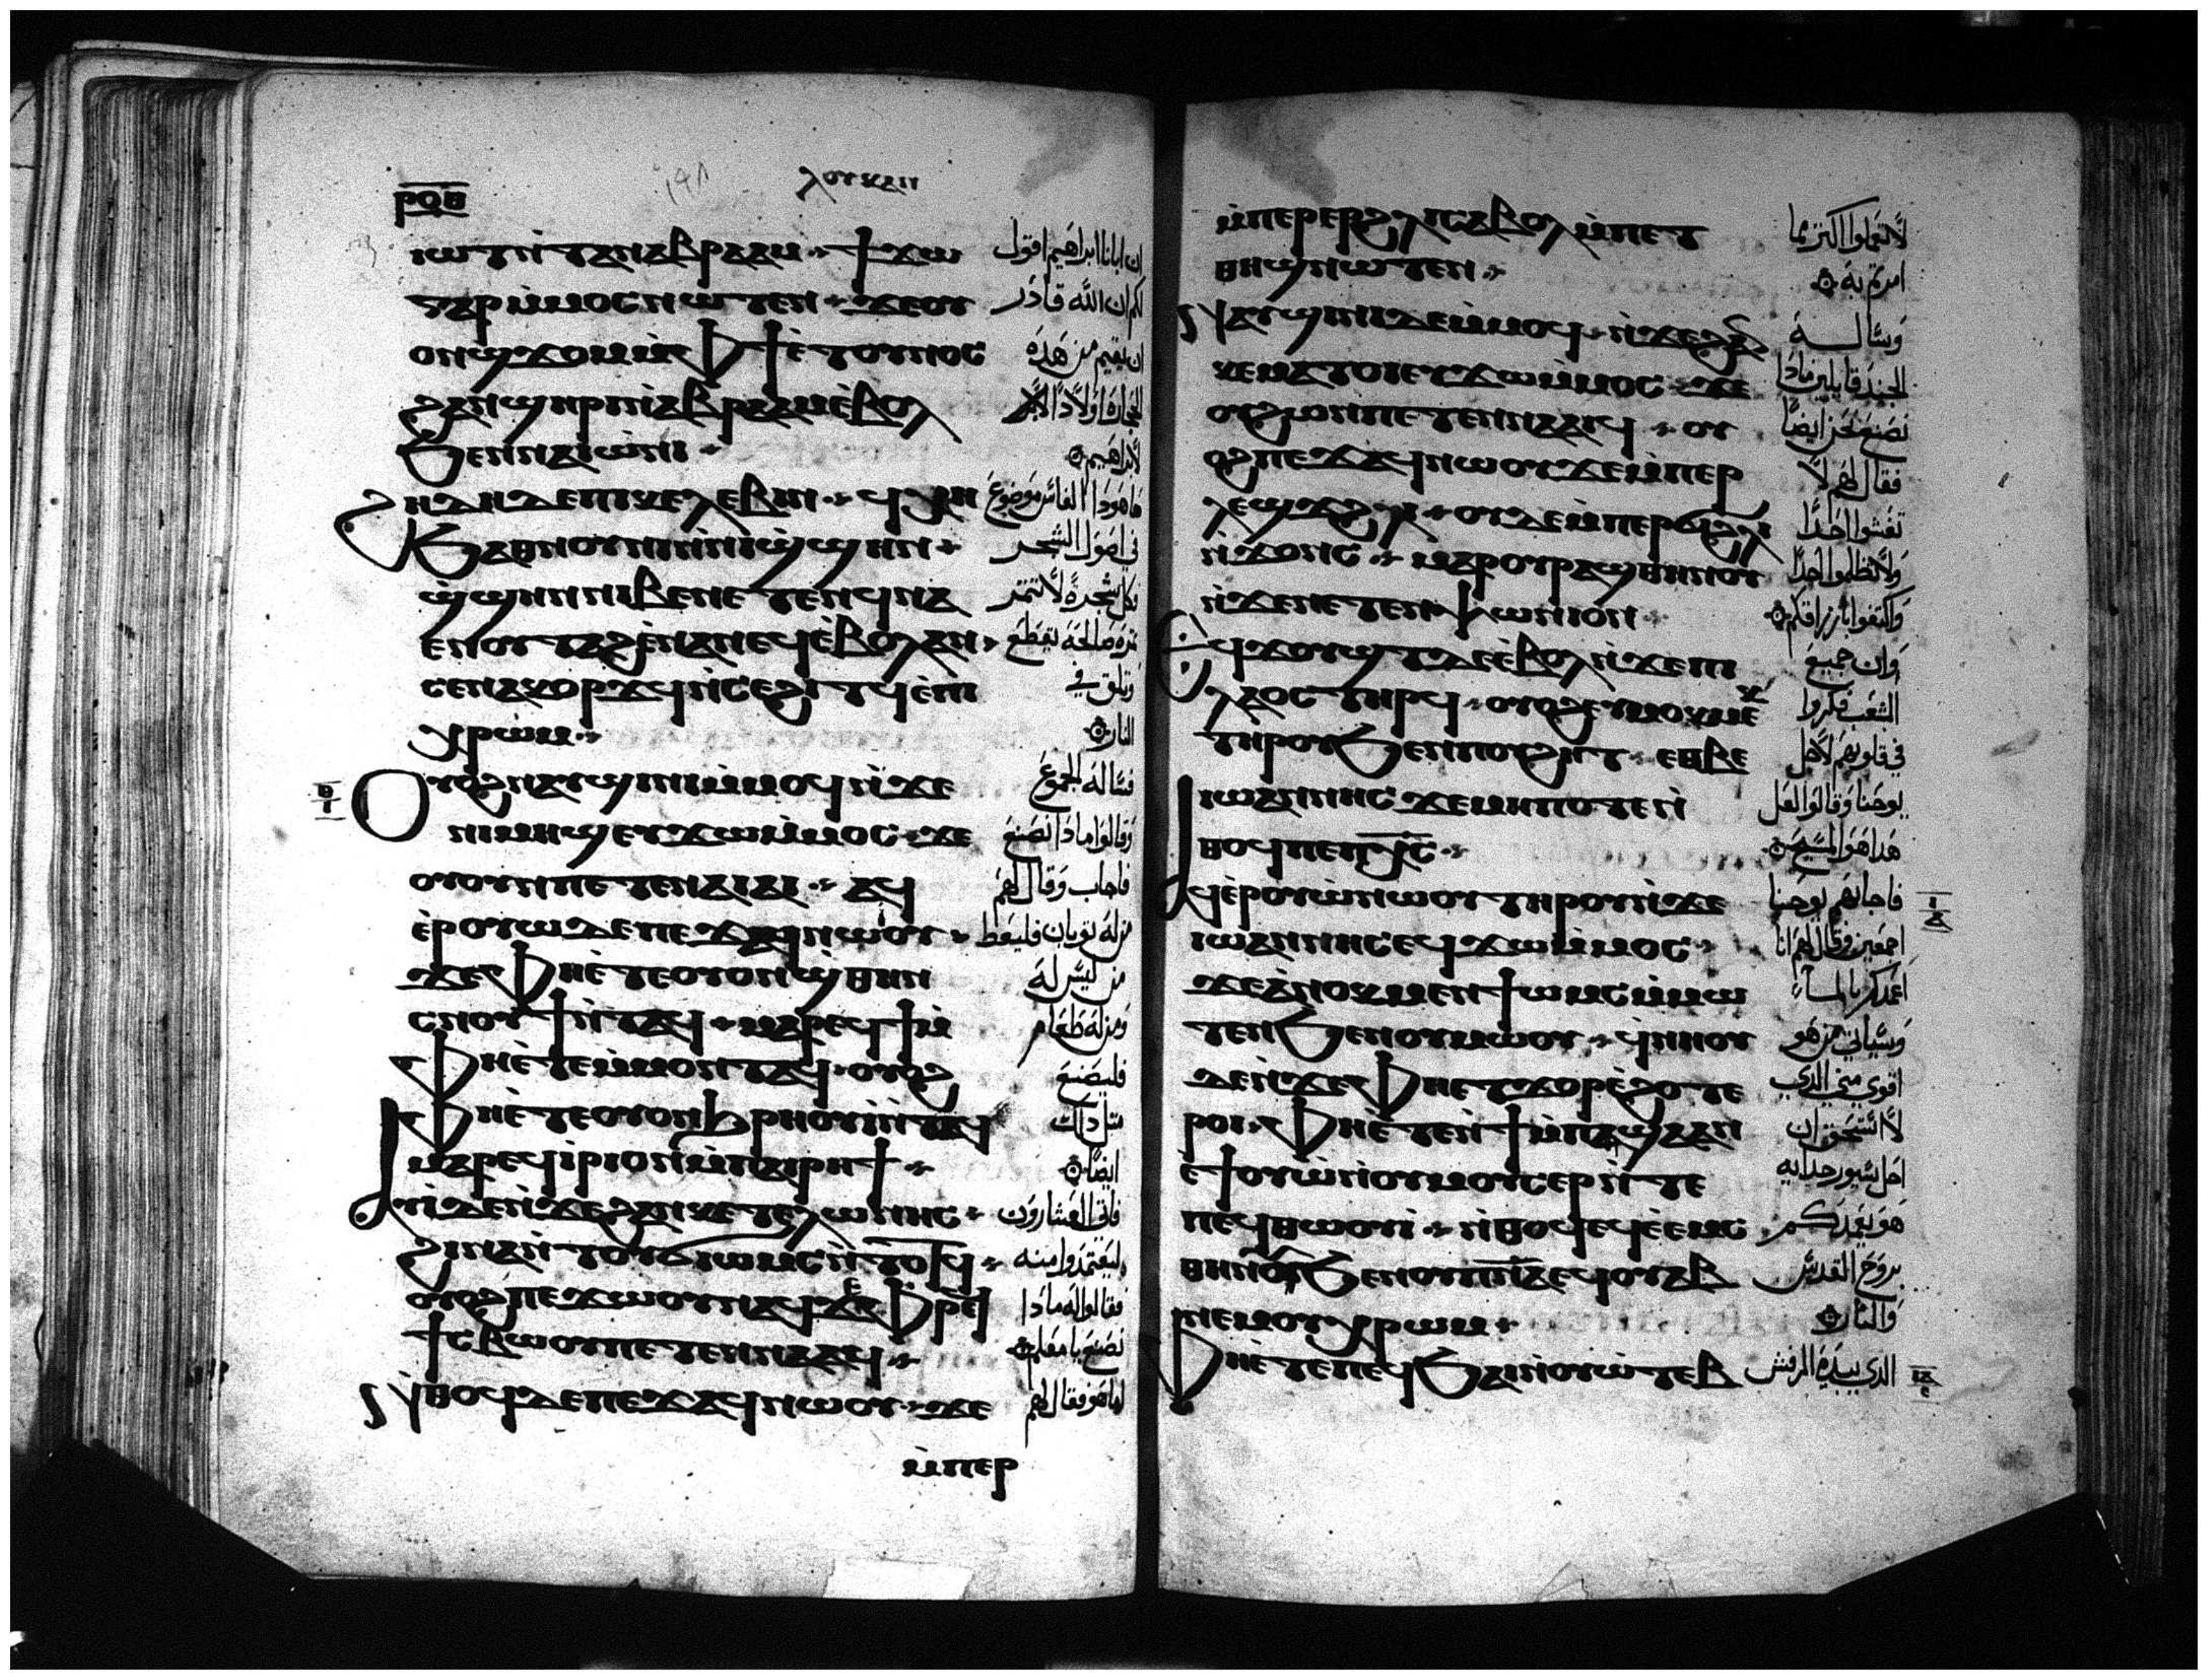 ⲣⲟⲑ
ⲗⲟⲩⲕⲁⲛ
ⲓⲱⲧ ⲛ̀ⲧⲁⲛ ⲁⲃⲣⲁⲁⲙ ϯϫⲱ
ⲅⲁⲣ ⲙ̀ⲙⲟⲥ ⲛⲱⲧⲉⲛ ϫⲉ ⲟⲩ
ⲟⲛ ϣϫⲟⲙ ⲙ̀ⲫϯ ⲉ̀ⲧⲟⲩⲛⲟⲥ
ϩⲁⲛϣⲏⲣⲓ ⲛ̀ⲁⲃⲣⲁⲁⲙ ⲉ̀ⲃⲟⲗ
ϧⲉⲛ ⲛⲁⲓⲱ̀ⲛⲓ
ϩⲏⲇⲏ ⲇⲉ ⲡⲓⲕⲉⲗⲉⲃⲓⲛ ϥⲭⲏ
ϧⲁ ⲑⲛⲟⲩⲛⲓ ⲛ̀ⲛⲓϣ̀ϣⲏⲛ
ϣ̀ϣⲏⲛ ⲛⲓⲃⲉⲛ ⲉⲧⲉⲛϥⲛⲁ
ⲉⲛ ⲟⲩⲧⲁϩ ⲉ̀ⲛⲁⲛⲉϥ ⲉ̀ⲃⲟⲗ ⲁⲛ
ⲥⲉⲛⲁⲕⲟⲣϫϥ ⲛ̀ⲥⲉϩⲓⲧϥ ⲉ̀ⲡⲓ
ⲭⲣⲱⲙ
ⲟⲩⲟϩ ⲛⲁⲩϣⲓⲛⲓ ⲙ̀ⲙⲟϥ ⲛ̀ϫⲉ
ⲛⲓⲙⲏϣ ⲉⲩϫⲱ ⲙ̀ⲙⲟⲥ ϫⲉ
ⲟⲩ ⲟⲩⲛ ⲡⲉⲧⲉⲛⲁⲓⲁⲓ ⲁϥ
ⲉ̀ⲣⲟⲩⲱ ⲇⲉ ⲡⲉϫⲁϥ ⲛⲱⲟⲩ
ϫⲉ ⲫⲏⲉ̀ⲧⲉ ⲟⲩⲟⲛ ϣ̀ⲑⲏⲛ
ⲥⲛⲟⲩϯ ⲛ̀ⲧⲁϥ ⲙⲁⲣⲉϥϯ ⲙ̀
ⲫⲏⲉ̀ⲧⲉ ⲙ̀ⲙⲟⲛⲧⲁϥ ⲟⲩⲟϩ
ⲫⲏⲉ̀ⲧⲉ ⲟⲩⲟⲛ ϧⲣⲏⲟⲩⲓ̀ ⲛ̀ⲧⲁϥ
ⲙⲁⲣⲉϥⲓⲣⲓ ⲟⲛ ⲙ̀ⲡⲁⲓⲣⲏϯ
ⲁⲩⲓ̀ ⲇⲉ ⲛ̀ϫⲉ ϩⲁⲛⲕⲉⲧⲉⲗⲱⲛⲏⲥ
ϩⲓⲛⲁ ⲛ̀ⲧⲟⲩϭⲓⲱⲙⲥ ⲛ̀ⲧⲟⲧϥ
ⲟⲩⲟϩ ⲡⲉϫⲱⲟⲩ ⲛⲁϥ ϫⲉ ⲫⲣⲉϥ
ϯⲥⲃⲱ ⲟⲩ ⲡⲉⲧⲉⲛⲛⲁⲁϥ
ⲛ̀ⲑⲟϥ ⲇⲉ ⲡⲉϫⲁϥ ⲛⲱⲟⲩ ϫⲉ
ⲙ̀ⲡⲉⲣ
ان ابانا ابراهيم اقول
لكم ان الله قادر
ان يقيم من هذه
الحجارة اولادًا
لابراهيم
فاهوذا الفاس موضوع
في اصول الشجر
فكل شجرة لا تثمر
ثمرة صالحة تقطع
وتلقى في
النار
فساله الجموع
وقالوا ماذا نصنع
فاجاب وقال لهم
من له ثوبان فليعط
من ليس له
ومن له طعام
فليصنع
مثل ذلك
ايضًا
فاتى العشارون
ليعتمدوا منه
فقالوا له ماذا
نصنع يا معلم
اما هو فقال لهم
ⲙ̀ⲡⲉⲣⲉⲣ ϩⲗⲓ ⲥⲁⲃⲟⲗ ⲙ̀ⲡⲉⲧ
ⲑⲏϣ ⲛⲱⲧⲉⲛ
ⲛⲁⲩϣⲓⲛⲓ ⲇⲉ ⲙ̀ⲙⲟϥ ⲛ̀ϫⲉ ϩⲁⲛ
ⲕⲉⲙⲁⲧⲟⲓ ⲉⲩϫⲱ ⲙ̀ⲙⲟⲥ ϫⲉ
ⲟⲩ ϩⲱⲛ ⲡⲉⲧⲉⲛⲛⲁⲁⲓϥ ⲟⲩ
ⲟϩ ⲡⲉϫⲁϥ ⲛⲱⲟⲩ ϫⲉ ⲙ̀ⲡⲉⲣ
ⲗⲉϣϫ ϩⲗⲓ ⲟⲩⲇⲉ ⲙ̀ⲡⲉⲣϭⲓ ϩⲗⲓ
ⲛ̀ϫⲟⲛⲥ ⲙⲁⲣⲟⲩⲣⲁϣⲑⲏⲛⲟⲩ
ⲛ̀ϫⲉ ⲛⲉⲧⲉⲛⲟⲯⲱⲛⲓⲟⲛ
ⲉϥϫⲟⲩϣⲧ ⲇⲉ ⲉ̀ⲃⲟⲗ ⲛ̀ϫⲉ ⲡⲓ
ⲗⲁⲟⲥ ⲧⲏⲣϥ ⲟⲩⲟϩ ⲉⲩⲙⲟⲕⲙⲉⲕ
ⲧⲏⲣⲟⲩ ϧⲉⲛ ⲡⲟⲩϩⲏⲧ ⲉⲑⲃⲉ
ⲓⲱⲁⲛⲛⲏⲥ ϫⲉ ⲙⲏⲡⲟⲧⲉ ⲛ̀
ⲑⲟϥ ⲡⲉ ⲡⲭⲥ
ⲁϥⲉ̀ⲣⲟⲩⲱ̀ ⲛⲱⲟⲩ ⲧⲏⲣⲟⲩ ⲛ̀ϫⲉ
ⲓⲱⲁⲛⲛⲏⲥ ⲉϥϫⲱ ⲙ̀ⲙⲟⲥ
ϫⲉ ⲁ̀ⲛⲟⲕ ⲙⲉⲛ ϯⲱⲙⲥ ⲙ̀ⲙⲱ
ⲧⲉⲛ ϧⲉⲛ ⲟⲩⲙⲱⲟⲩ ϥ̀ⲛⲏⲟⲩ
ⲇⲉ ⲛ̀ϫⲉ ⲫⲏⲉⲧϫⲟⲣ ⲉ̀ϩⲟⲧⲉ
ⲣⲟⲓ ⲫⲏⲉ̀ⲧⲉⲛ̀ϯⲙ̀ⲡϣⲁ ⲁⲛ
ⲉ̀ϯⲟⲩⲱ̀ ⲛ̀ⲟⲩⲙⲟⲩⲥⲉⲣ ⲛ̀ⲧⲉ
ⲡⲉϥⲑⲱⲟⲩⲓ̀ ⲛ̀ⲑⲟϥ ⲉϥⲉ̀ⲉⲙⲥ
ⲑⲏⲛⲟⲩ ϧⲉⲛ ⲟⲩⲡⲛⲁ ⲉϥⲟⲩⲁⲃ
ⲛⲉⲙ ⲟⲩⲭⲣⲱⲙ
ⲫⲏⲉ̀ⲧⲉ ⲡⲉϥϧⲁⲓ ⲛ̀ⲟⲩⲱ̀ⲧⲉⲃ
لا تعملوا اكثر مما
امرتم به
وساله
الجند قايلين ماذا
نصنع نحن ايضًا
فقال لهم لا
تغشوا احدًا
ولا تظلموا احدًا
واكتفوا بارزاقكم
وان جميع
الشعب فكروا
في قلوبهم لاجل
يوحنا وقالوا لعل
هذا هو المسيح
فاجابهم يوحنا
اجمعين وقال لهم انا
اعمدكم بالماء
وسياتي من هو
اقوى مني الذي
لا استحق ان
احل سيور حذايه
هو يعمدكم
بروح القدس
والنار
الذي بيده المرفش